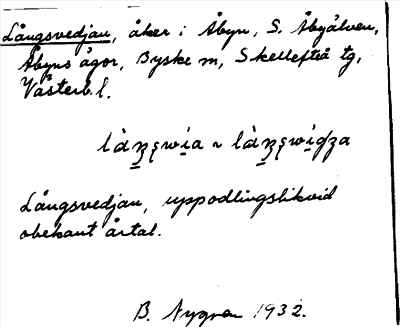 Långsvedjan, åker i Åbyn, S. Åbyälven,
Åbyns ägor, Byske sn, Skellefteå tg,
Västerb. l.
Långsvedjan, uppodlingslikvid
obekant årtal.
B. Nygren 1932.